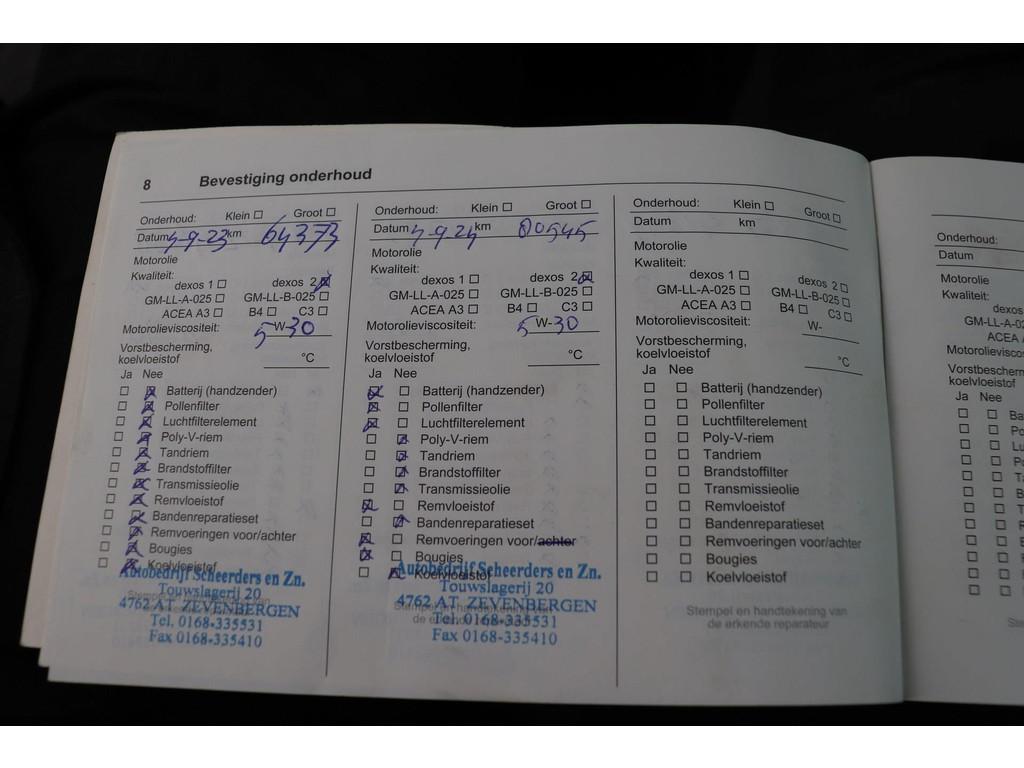 8 Bevestiging onderhoud
Onderhoud: Klein ☐ Groot ☐
Datum 4-9-23 km 64373
Motorolie
Kwaliteit:
dexos 1 ☐ dexos 2 ☒
GM-LL-A-025 ☐ GM-LL-B-025 ☐
ACEA A3 ☐ B4 ☐ C3 ☐
Motorolieviscositeit: 5 W-30
Vorstbescherming,
koelvloeistof °C
Ja Nee
☐ ☒ Batterij (handzender)
☐ ☒ Pollenfilter
☐ ☒ Luchtfilterelement
☐ ☒ Poly-V-riem
☐ ☒ Tandriem
☐ ☒ Brandstoffilter
☐ ☒ Transmissieolie
☐ ☒ Remvloeistof
☐ ☒ Bandenreparatieset
☐ ☒ Remvoeringen voor/achter
☐ ☒ Bougies
☐ ☒ Koelvloeistof
Autobedrijf Scheerders en Zn.
Touwslagerij 20
4762 AT ZEVENBERGEN
Tel. 0168-335531
Fax 0168-335410
Onderhoud: Klein ☐ Groot ☐
Datum 4-9-24 km 80545
Motorolie
Kwaliteit:
dexos 1 ☐ dexos 2 ☒
GM-LL-A-025 ☐ GM-LL-B-025 ☐
ACEA A3 ☐ B4 ☐ C3 ☐
Motorolieviscositeit: 5 W-30
Vorstbescherming,
koelvloeistof °C
Ja Nee
☒ ☐ Batterij (handzender)
☒ ☐ Pollenfilter
☒ ☐ Luchtfilterelement
☐ ☒ Poly-V-riem
☐ ☒ Tandriem
☐ ☒ Brandstoffilter
☐ ☒ Transmissieolie
☒ ☐ Remvloeistof
☐ ☒ Bandenreparatieset
☒ ☐ Remvoeringen voor/achter
☒ ☐ Bougies
☐ ☒ Koelvloeistof
Autobedrijf Scheerders en Zn.
Touwslagerij 20
4762 AT ZEVENBERGEN
Stempel en handtekening van
de erkende reparateur
Tel. 0168-335531
Fax 0168-335410
Onderhoud: Klein ☐ Groot ☐
Datum km
Motorolie
Kwaliteit:
dexos 1 ☐ dexos 2 ☐
GM-LL-A-025 ☐ GM-LL-B-025 ☐
ACEA A3 ☐ B4 ☐ C3 ☐
Motorolieviscositeit: W-
Vorstbescherming,
koelvloeistof °C
Ja Nee
☐ ☐ Batterij (handzender)
☐ ☐ Pollenfilter
☐ ☐ Luchtfilterelement
☐ ☐ Poly-V-riem
☐ ☐ Tandriem
☐ ☐ Brandstoffilter
☐ ☐ Transmissieolie
☐ ☐ Remvloeistof
☐ ☐ Bandenreparatieset
☐ ☐ Remvoeringen voor/achter
☐ ☐ Bougies
☐ ☐ Koelvloeistof
Stempel en handtekening van
de erkende reparateur
Onderhoud:
Datum
Motorolie
Kwaliteit:
dexos
GM-LL-A-02
ACEA
Motorolieviscos
Vorstbescherm
koelvloeistof
Ja Nee